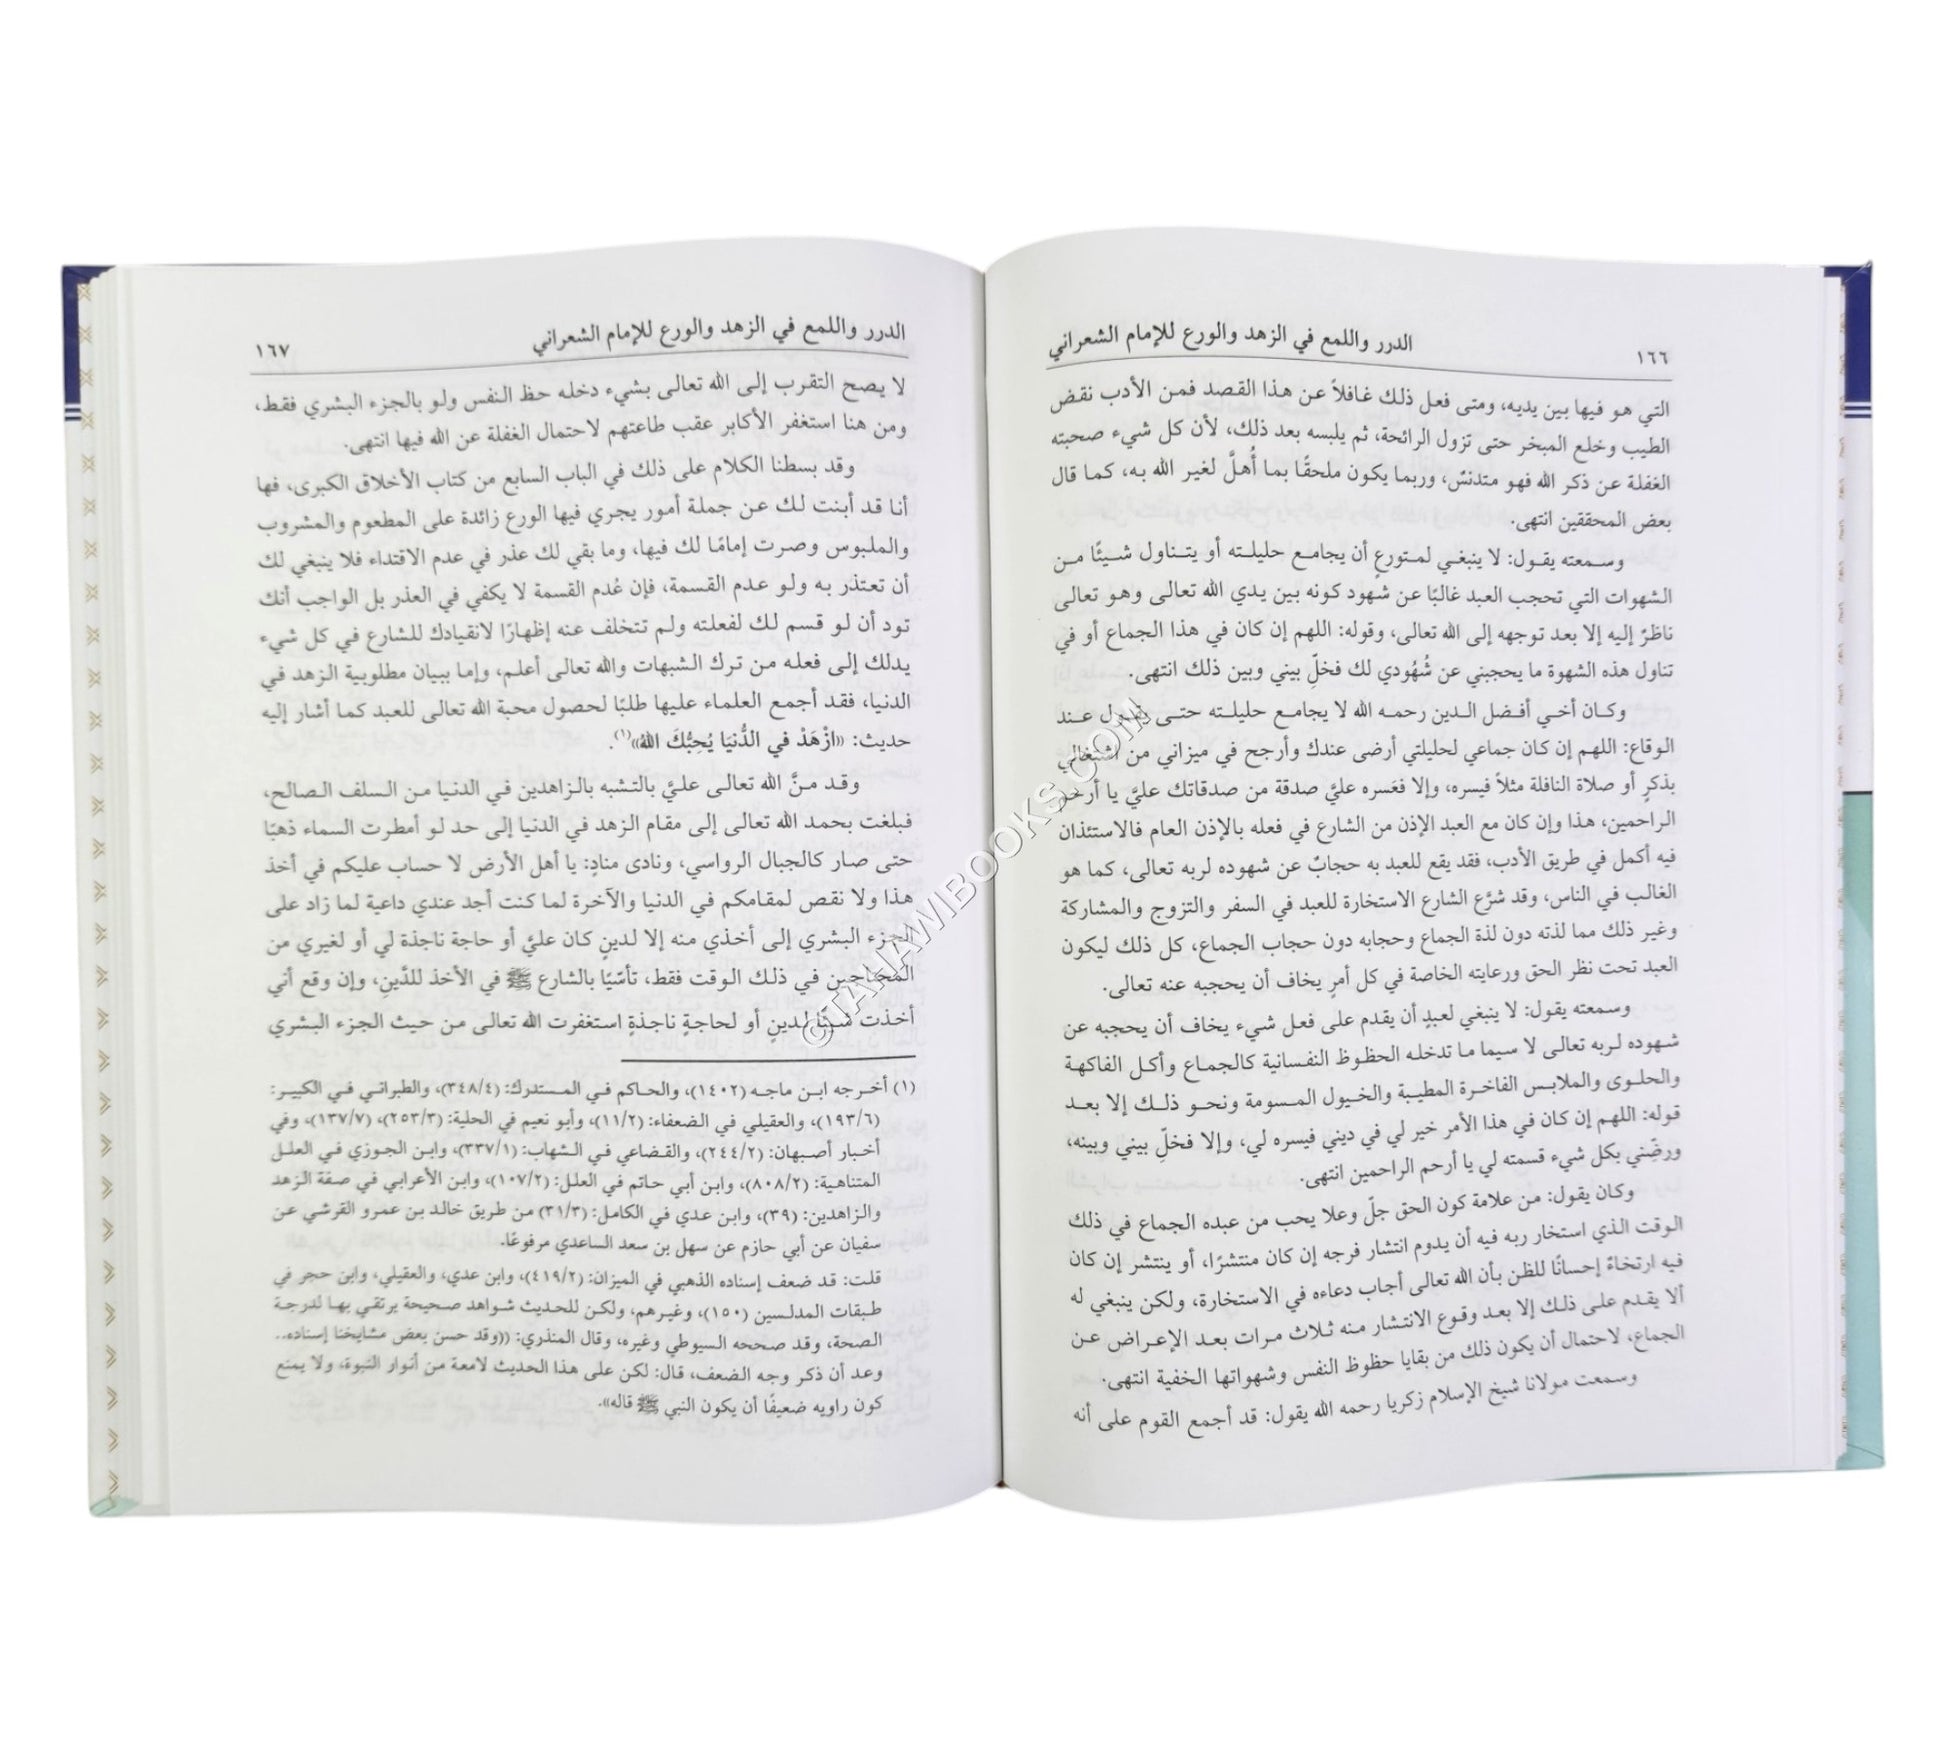 ١٦٦
الدرر واللمع في الزهد والورع للإمام الشعراني
التي هو فيها بين يديه، ومتى فعل ذلك غافلاً عن هذا القصد فمن الأدب نقض
الطيب وخلع المبخر حتى تزول الرائحة، ثم يلبسه بعد ذلك، لأن كل شيء صحبته
الغفلة عن ذكر الله فهو متدنسٌ، وربما يكون ملحقًا بما أُهلَّ لغير الله به، كما قال
بعض المحققين انتهى.
وسمعته يقول: لا ينبغي لمتورعٍ أن يجامع حليلته أو يتناول شيئًا من
الشهوات التي تحجب العبد غالبًا عن شهود كونه بين يدي الله تعالى وهو تعالى
ناظرٌ إليه إلا بعد توجهه إلى الله تعالى، وقوله: اللهم إن كان في هذا الجماع أو في
تناول هذه الشهوة ما يحجبني عن شُهُودي لك فخلِّ بيني وبين ذلك انتهى.
وكان أخي أفضل الدين رحمه الله لا يجامع حليلته حتى يقول عند
الوقاع: اللهم إن كان جماعي لحليلتي أرضى عندك وأرجح في ميزاني من اشتغالي
بذكرٍ أو صلاة النافلة مثلاً فيسره، وإلا فعَسره عليَّ صدقة من صدقاتك عليَّ يا أرحم
الراحمين، هذا وإن كان مع العبد الإذن من الشارع في فعله بالإذن العام فالاستئذان
فيه أكمل في طريق الأدب، فقد يقع للعبد به حجابٌ عن شهوده لربه تعالى، كما هو
الغالب في الناس، وقد شرَّع الشارع الاستخارة للعبد في السفر والتزوج والمشاركة
وغير ذلك مما لذته دون لذة الجماع وحجابه دون حجاب الجماع، كل ذلك ليكون
العبد تحت نظر الحق ورعايته الخاصة في كل أمرٍ يخاف أن يحجبه عنه تعالى.
وسمعته يقول: لا ينبغي لعبدٍ أن يقدم على فعل شيء يخاف أن يحجبه عن
شهوده لربه تعالى لا سيما ما تدخله الحظوظ النفسانية كالجماع وأكل الفاكهة
والحلوى والملابس الفاخرة المطيبة والخيول المسومة ونحو ذلك إلا بعد
قوله: اللهم إن كان في هذا الأمر خير لي في ديني فيسره لي، وإلا فخلِّ بيني وبينه،
ورضِّني بكل شيء قسمته لي يا أرحم الراحمين انتهى.
وكان يقول: من علامة كون الحق جلّ وعلا يحب من عبده الجماع في ذلك
الوقت الذي استخار ربه فيه أن يدوم انتشار فرجه إن كان منتشرًا، أو ينتشر إن كان
فيه ارتخاءٌ إحسانًا للظن بأن الله تعالى أجاب دعاءه في الاستخارة، ولكن ينبغي له
ألا يقدم على ذلك إلا بعد وقوع الانتشار منه ثلاث مرات بعد الإعراض عن
الجماع، لاحتمال أن يكون ذلك من بقايا حظوظ النفس وشهواتها الخفية انتهى.
وسمعت مولانا شيخ الإسلام زكريا رحمه الله يقول: قد أجمع القوم على أنه
الدرر واللمع في الزهد والورع للإمام الشعراني
١٦٧
لا يصح التقرب إلى الله تعالى بشيء دخله حظ النفس ولو بالجزء البشري فقط،
ومن هنا استغفر الأكابر عقب طاعتهم لاحتمال الغفلة عن الله فيها انتهى.
وقد بسطنا الكلام على ذلك في الباب السابع من كتاب الأخلاق الكبرى، فها
أنا قد أبنت لك عن جملة أمور يجري فيها الورع زائدة على المطعوم والمشروب
والملبوس وصرت إمامًا لك فيها، وما بقي لك عذر في عدم الاقتداء فلا ينبغي لك
أن تعتذر به ولو عدم القسمة، فإن عُدم القسمة لا يكفي في العذر بل الواجب أنك
تود أن لو قسم لك لفعلته ولم تتخلف عنه إظهارًا لانقيادك للشارع في كل شيء
يدلك إلى فعله من ترك الشبهات والله تعالى أعلم، وإما ببيان مطلوبية الزهد في
الدنيا، فقد أجمع العلماء عليها طلبًا لحصول محبة الله تعالى للعبد كما أشار إليه
حديث: «ازْهَدْ في الدُّنيَا يُحِبُّكَ اللهُ»(١).
وقد منَّ الله تعالى عليَّ بالتشبه بالزاهدين في الدنيا من السلف الصالح،
فبلغت بحمد الله تعالى إلى مقام الزهد في الدنيا إلى حد لو أمطرت السماء ذهبًا
حتى صار كالجبال الرواسي، ونادى منادٍ: يا أهل الأرض لا حساب عليكم في أخذ
هذا ولا نقص لمقامكم في الدنيا والآخرة لما كنت أجد عندي داعية لما زاد على
الجزء البشري إلى أخذي منه إلا لدينٍ كان عليَّ أو حاجة ناجذة لي أو لغيري من
المحتاجين في ذلك الوقت فقط، تأسّيًا بالشارع ﷺ في الأخذ للدَّينِ، وإن وقع أني
أخذت شيئًا لدينٍ أو لحاجةٍ ناجذةٍ استغفرت الله تعالى من حيث الجزء البشري
(١) أخرجه ابن ماجه (١٤٠٢)، والحاكم في المستدرك: (٣٤٨/٤)، والطبراني في الكبير:
(١٩٣/٦)، والعقيلي في الضعفاء: (١١/٢)، وأبو نعيم في الحلية: (٢٥٣/٣)، (١٣٧/٧)، وفي
أخبار أصبهان: (٢٤٤/٢)، والقضاعي في الشهاب: (٣٣٧/١)، وابن الجوزي في العلل
المتناهية: (٨٠٨/٢)، وابن أبي حاتم في العلل: (١٠٧/٢)، وابن الأعرابي في صفة الزهد
والزاهدين: (٣٩)، وابن عدي في الكامل: (٣١/٣) من طريق خالد بن عمرو القرشي عن
سفيان عن أبي حازم عن سهل بن سعد الساعدي مرفوعًا.
قلت: قد ضعف إسناده الذهبي في الميزان: (٤١٩/٢)، وابن عدي، والعقيلي، وابن حجر في
طبقات المدلسين (١٥٠)، وغيرهم، ولكن للحديث شواهد صحيحة يرتقي بها لدرجة
الصحة، وقد صححه السيوطي وغيره، وقال المنذري: ((وقد حسن بعض مشايخنا إسناده..
وعد أن ذكر وجه الضعف، قال: لكن على هذا الحديث لامعة من أنوار النبوة، ولا يمنع
كون راويه ضعيفًا أن يكون النبي ﷺ قاله».
©TAHAWIBOOKS.COM